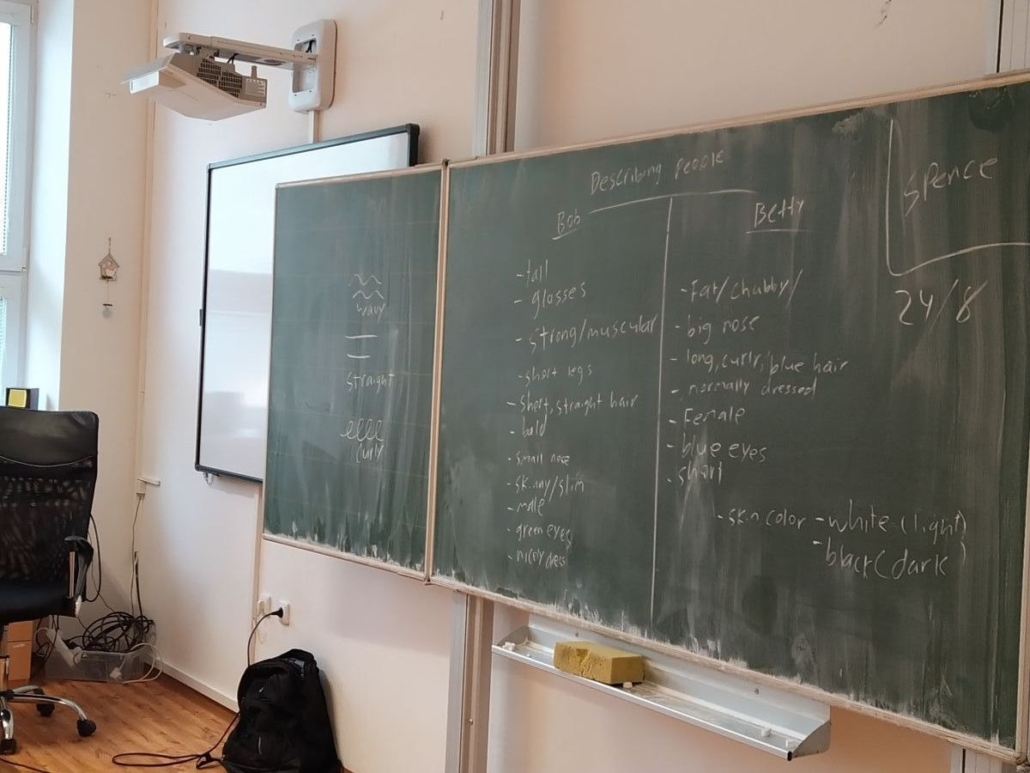 wavy
straight
curly
Describing people
Bob
- tall
- glasses
- strong/muscular
- short legs
- short, straight hair
- bald
- small nose
- skinny/slim
- male
- green eyes
- nicely dress
Betty
- Fat/chubby/
- big nose
- long, curly, blue hair
- normally dressed
- Female
- blue eyes
- short
- skin color - white (light)
- black (dark)
SPENCE
24/8